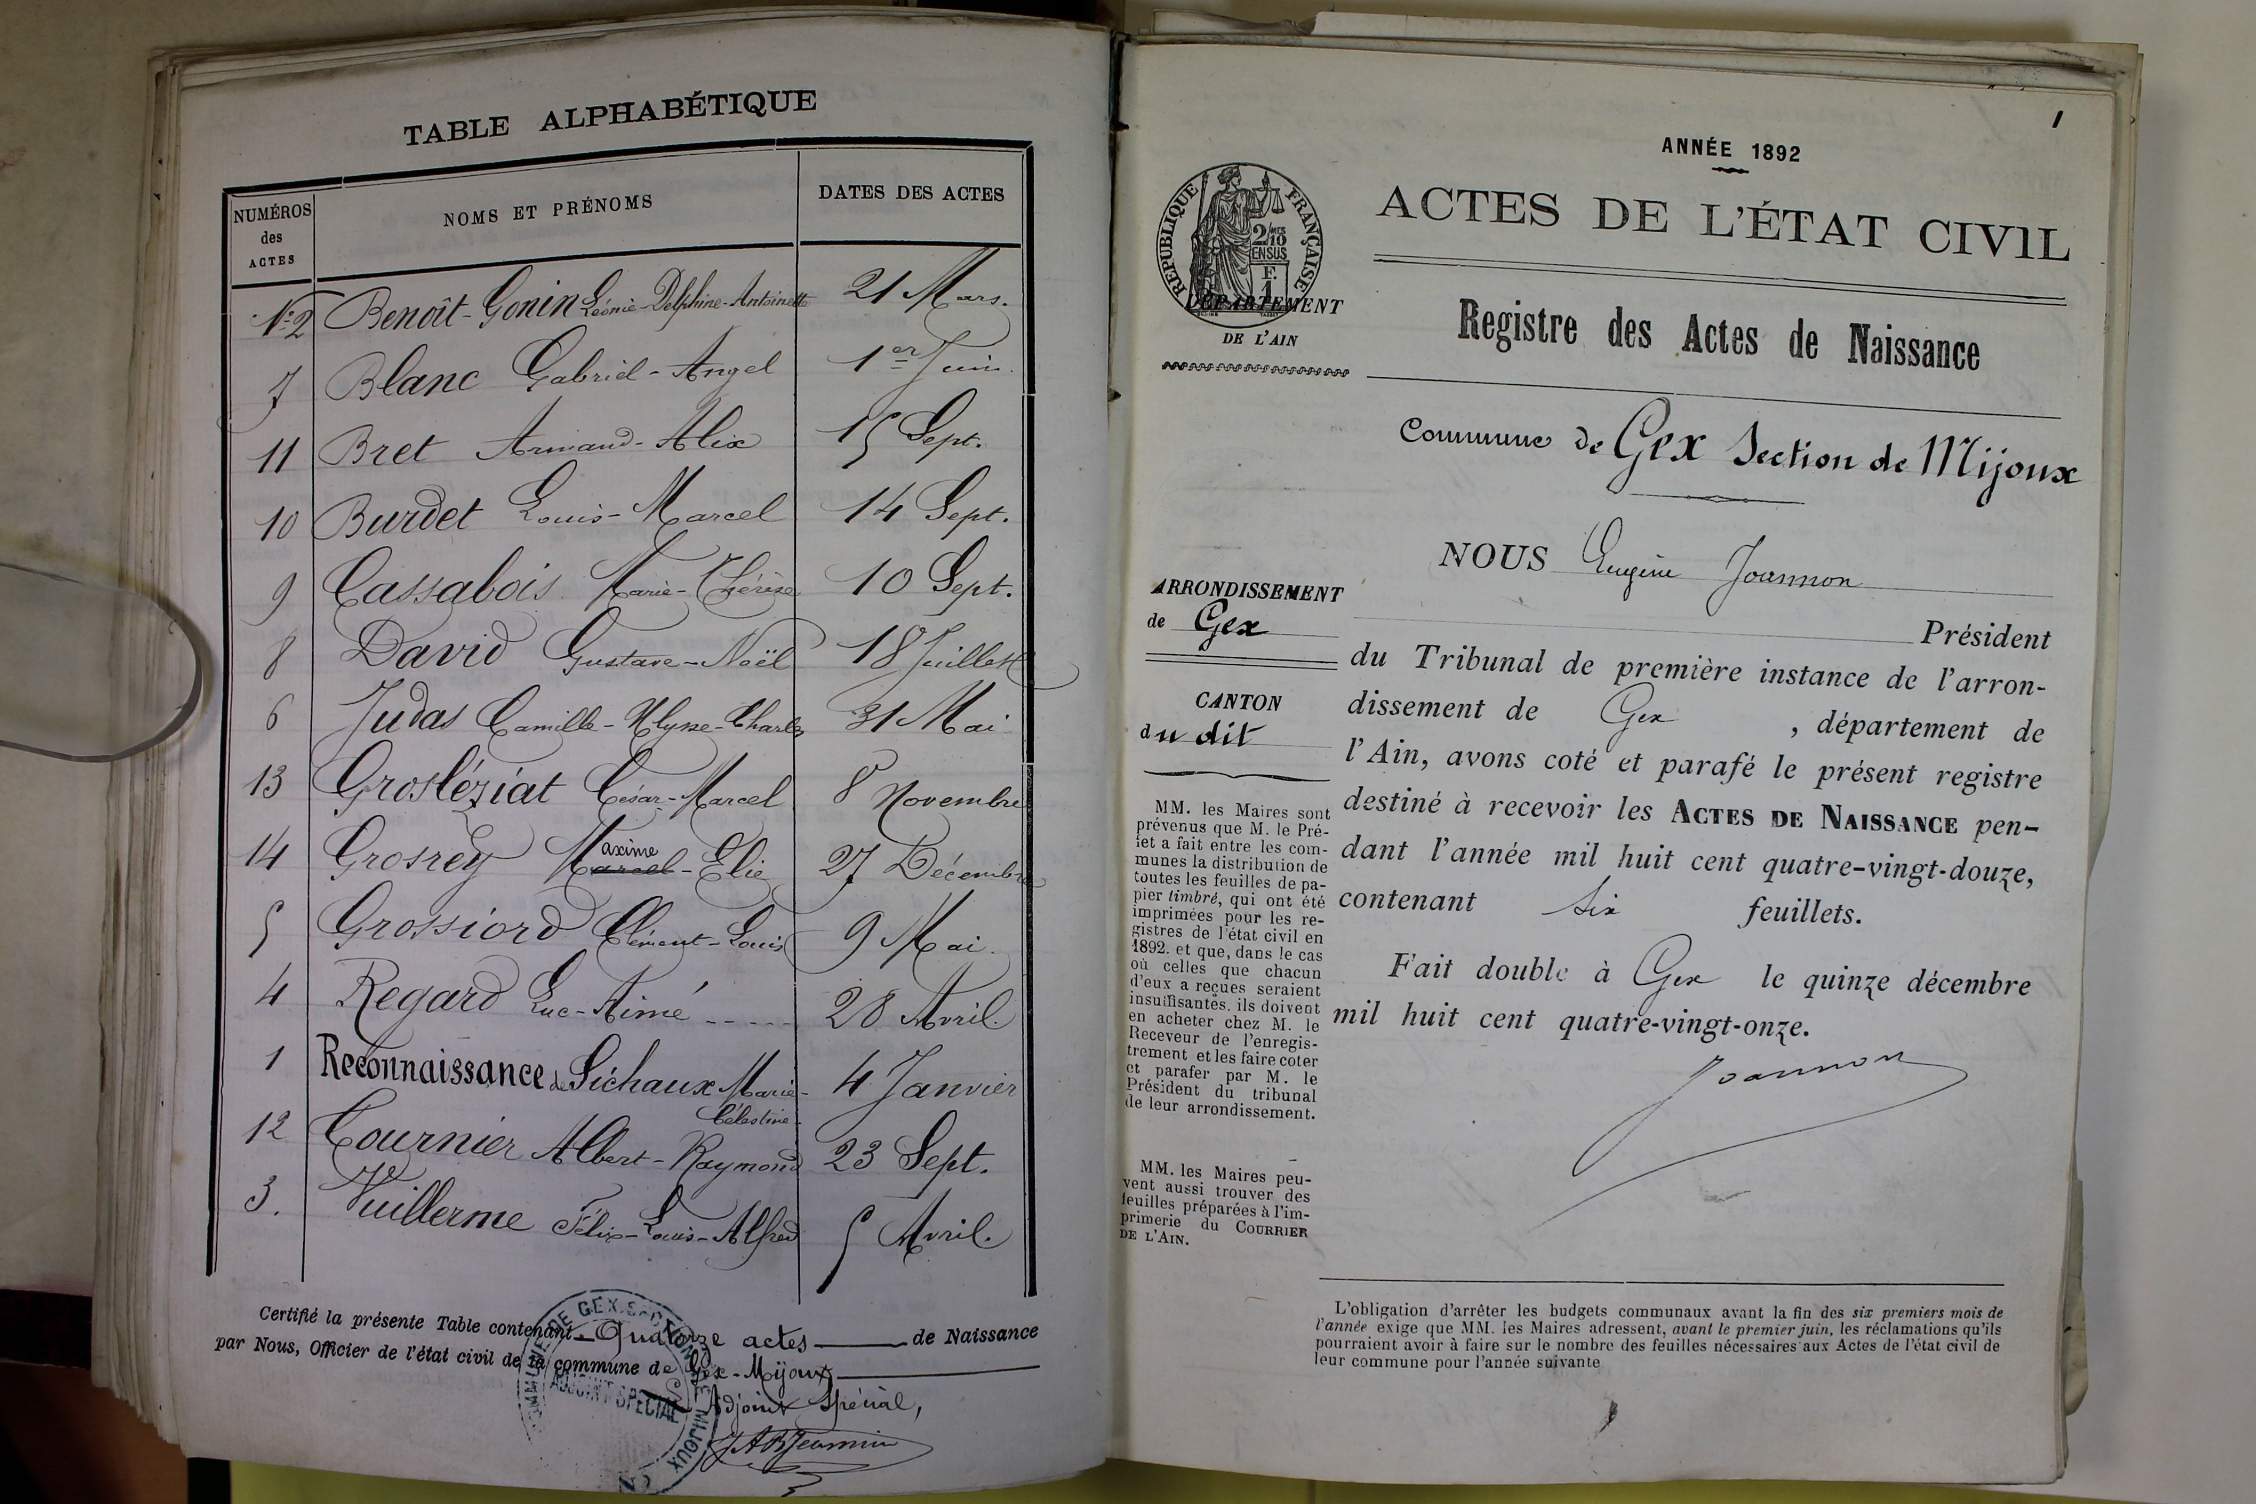 TABLE ALPHABÉTIQUE
NUMÉROS des ACTES
NOMS ET PRÉNOMS
DATES DES ACTES
N° 2 Benoît-Gonin Léonie-Delphine-Antoinette 21 Mars.
7 Blanc Gabriel-Angel 1er Juin.
11 Bret Armand-Alix 15 Sept.
10 Burdet Louis-Marcel 14 Sept.
9 Cassabois Marie-Thérèse 10 Sept.
8 David Gustave-Noël 18 Juillet
6 Judas Camille-Ulysse-Charles 31 Mai
13 Grosléziat César-Marcel 8 Novembre
14 Grosrey Maxime Marcel-Elie 27 Décembre
5 Grossiord Clément-Louis 9 Mai.
4 Regard Luc-Aimé ----- 28 Avril.
1 Reconnaissance de Sichaux Marie- 4 Janvier
Célestine-
12 Tournier Albert-Raymond 23 Sept.
3. Vuillerme Félix-Louis-Alfred 5 Avril.
Certifié la présente Table contenant Quatorze actes de Naissance
par Nous, Officier de l'état civil de la commune de Gex-Mijoux
Adjoint Spécial,
COMMUNE DE GEX SECTION DE MIJOUX
ADJOINT SPECIAL
1
ANNÉE 1892
ACTES DE L'ÉTAT CIVIL
RÉPUBLIQUE FRANÇAISE
2/10MES
EN SUS
F.
1
DÉPARTEMENT
DE L'AIN
Registre des Actes de Naissance
Commune de Gex Section de Mijoux
NOUS Eugène Joannon
Président
ARRONDISSEMENT
de Gex
CANTON
du dit
du Tribunal de première instance de l'arron-
dissement de Gex , département de
l'Ain, avons coté et parafé le présent registre
destiné à recevoir les ACTES DE NAISSANCE pen-
dant l'année mil huit cent quatre-vingt-douze,
contenant six feuillets.
Fait double à Gex le quinze décembre
mil huit cent quatre-vingt-onze.
Joannon
MM. les Maires sont
prévenus que M. le Pré-
fet a fait entre les com-
munes la distribution de
toutes les feuilles de pa-
pier timbré, qui ont été
imprimées pour les re-
gistres de l'état civil en
1892. et que, dans le cas
où celles que chacun
d'eux a reçues seraient
insuffisantes, ils doivent
en acheter chez M. le
Receveur de l'enregis-
trement et les faire coter
et parafer par M. le
Président du tribunal
de leur arrondissement.
MM. les Maires peu-
vent aussi trouver des
feuilles préparées à l'im-
primerie du COURRIER
DE L'AIN.
L'obligation d'arrêter les budgets communaux avant la fin des six premiers mois de
l'année exige que MM. les Maires adressent, avant le premier juin, les réclamations qu'ils
pourraient avoir à faire sur le nombre des feuilles nécessaires aux Actes de l'état civil de
leur commune pour l'année suivante